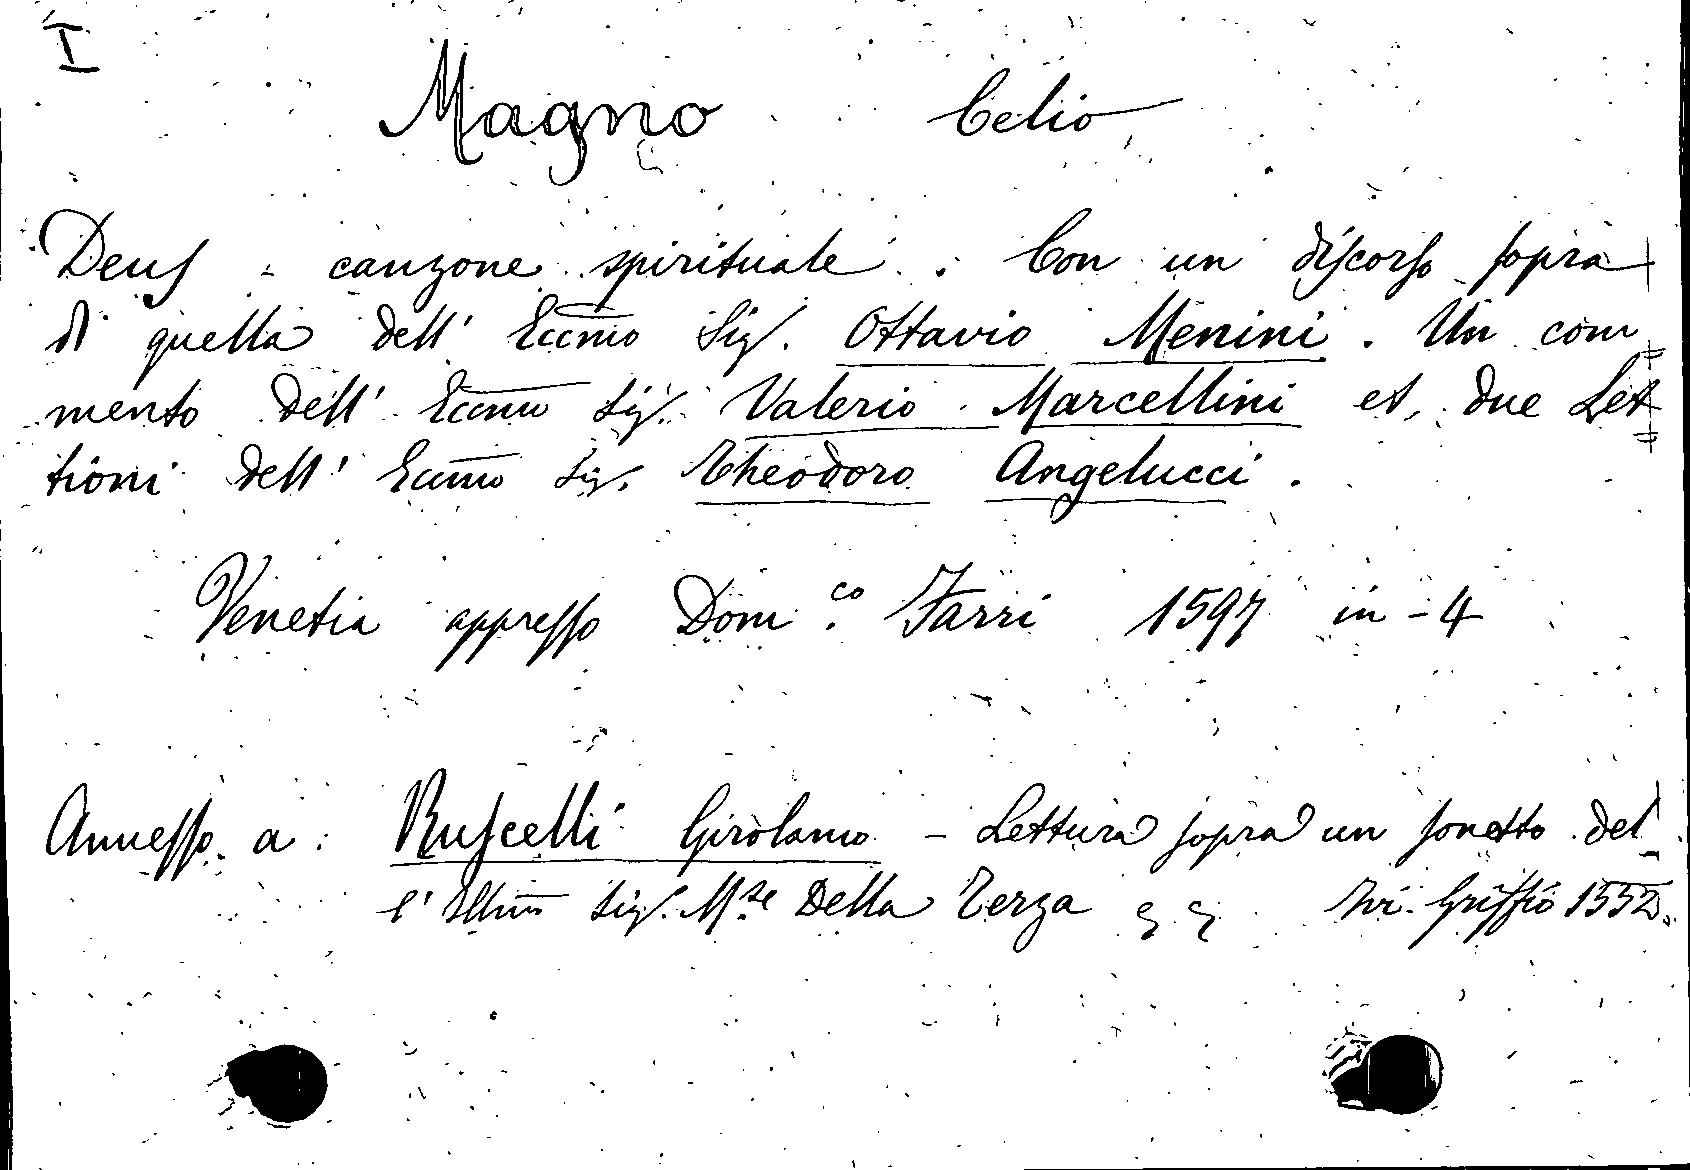 I
Magno Celio
Deus - canzone spirituale. Con un discorso sopra
di quella dell' Eccmo Sig. Ottavio Menini. Un com
mento dell' Eccmo Sig. Valerio Marcellini et due Let
tioni dell' Eccmo Sig. Theodoro Angelucci.
Venetia appresso Dom.co Farri 1597 in-4
Annesso a: Ruscelli Girolamo - Lettura sopra un sonetto del
l'Illmo Sig. Mse Della Terza Griffio 1552.